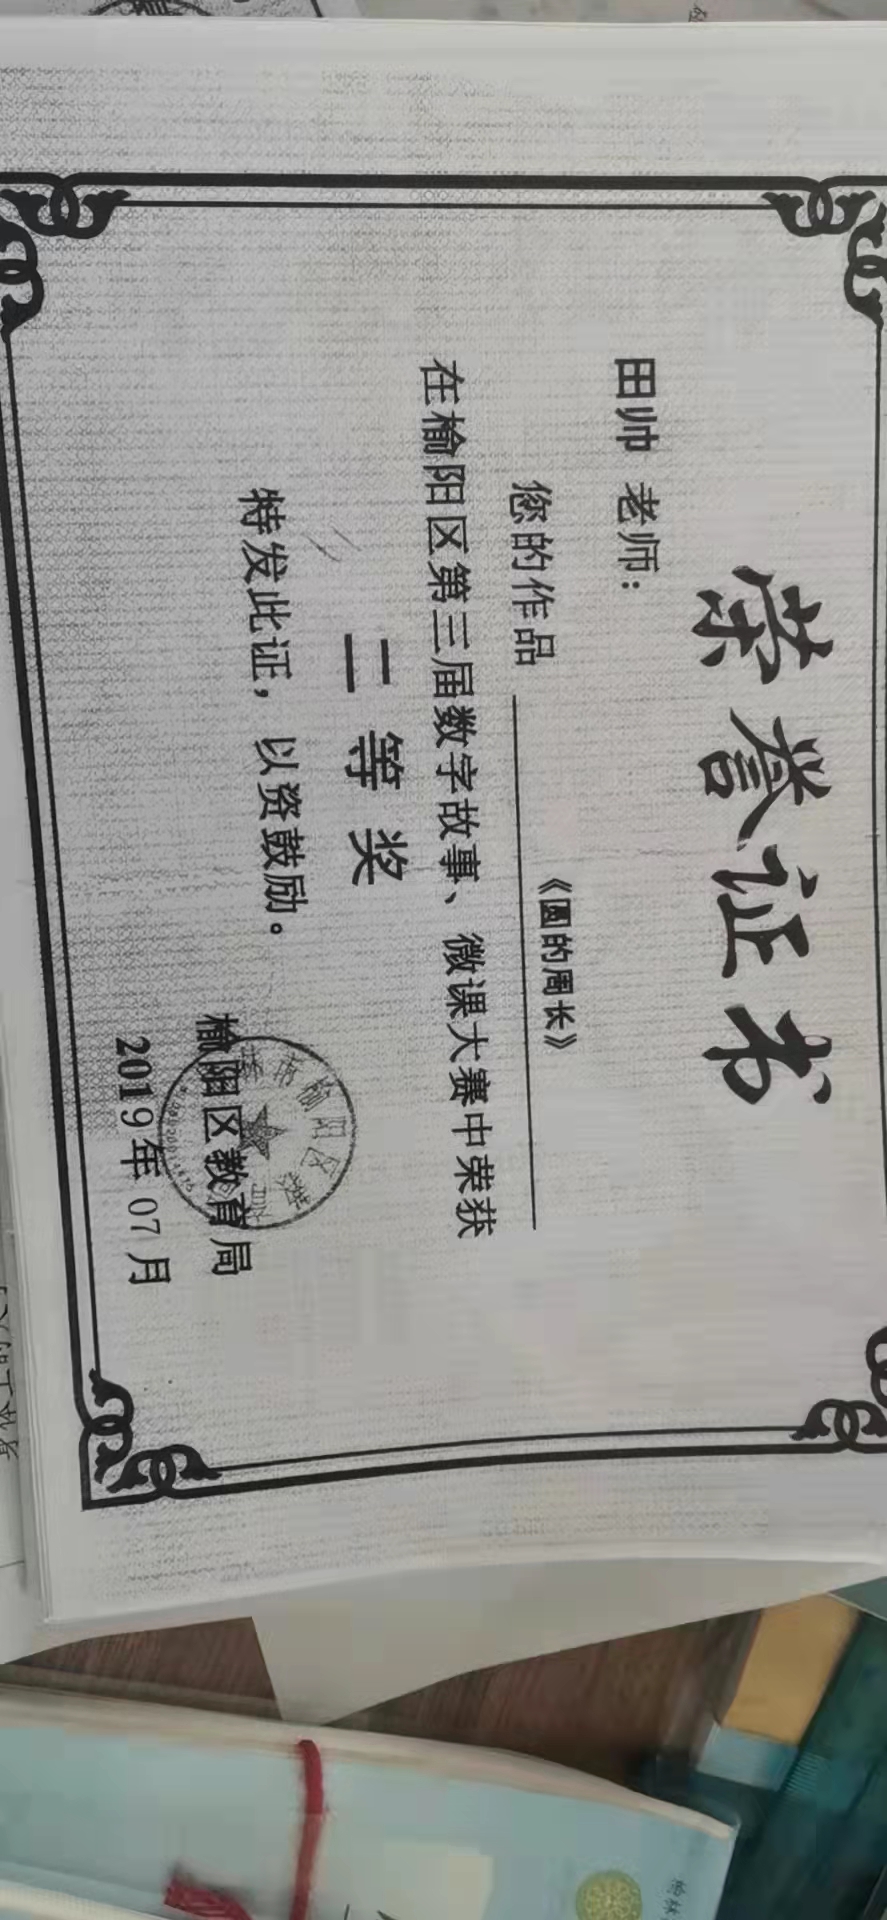 荣誉证书
田帅 老师：
您的作品 《圆的周长》
在榆阳区第三届数字故事、微课大赛中荣获
二等奖
特发此证，以资鼓励。
榆阳区教育局
2019年07月